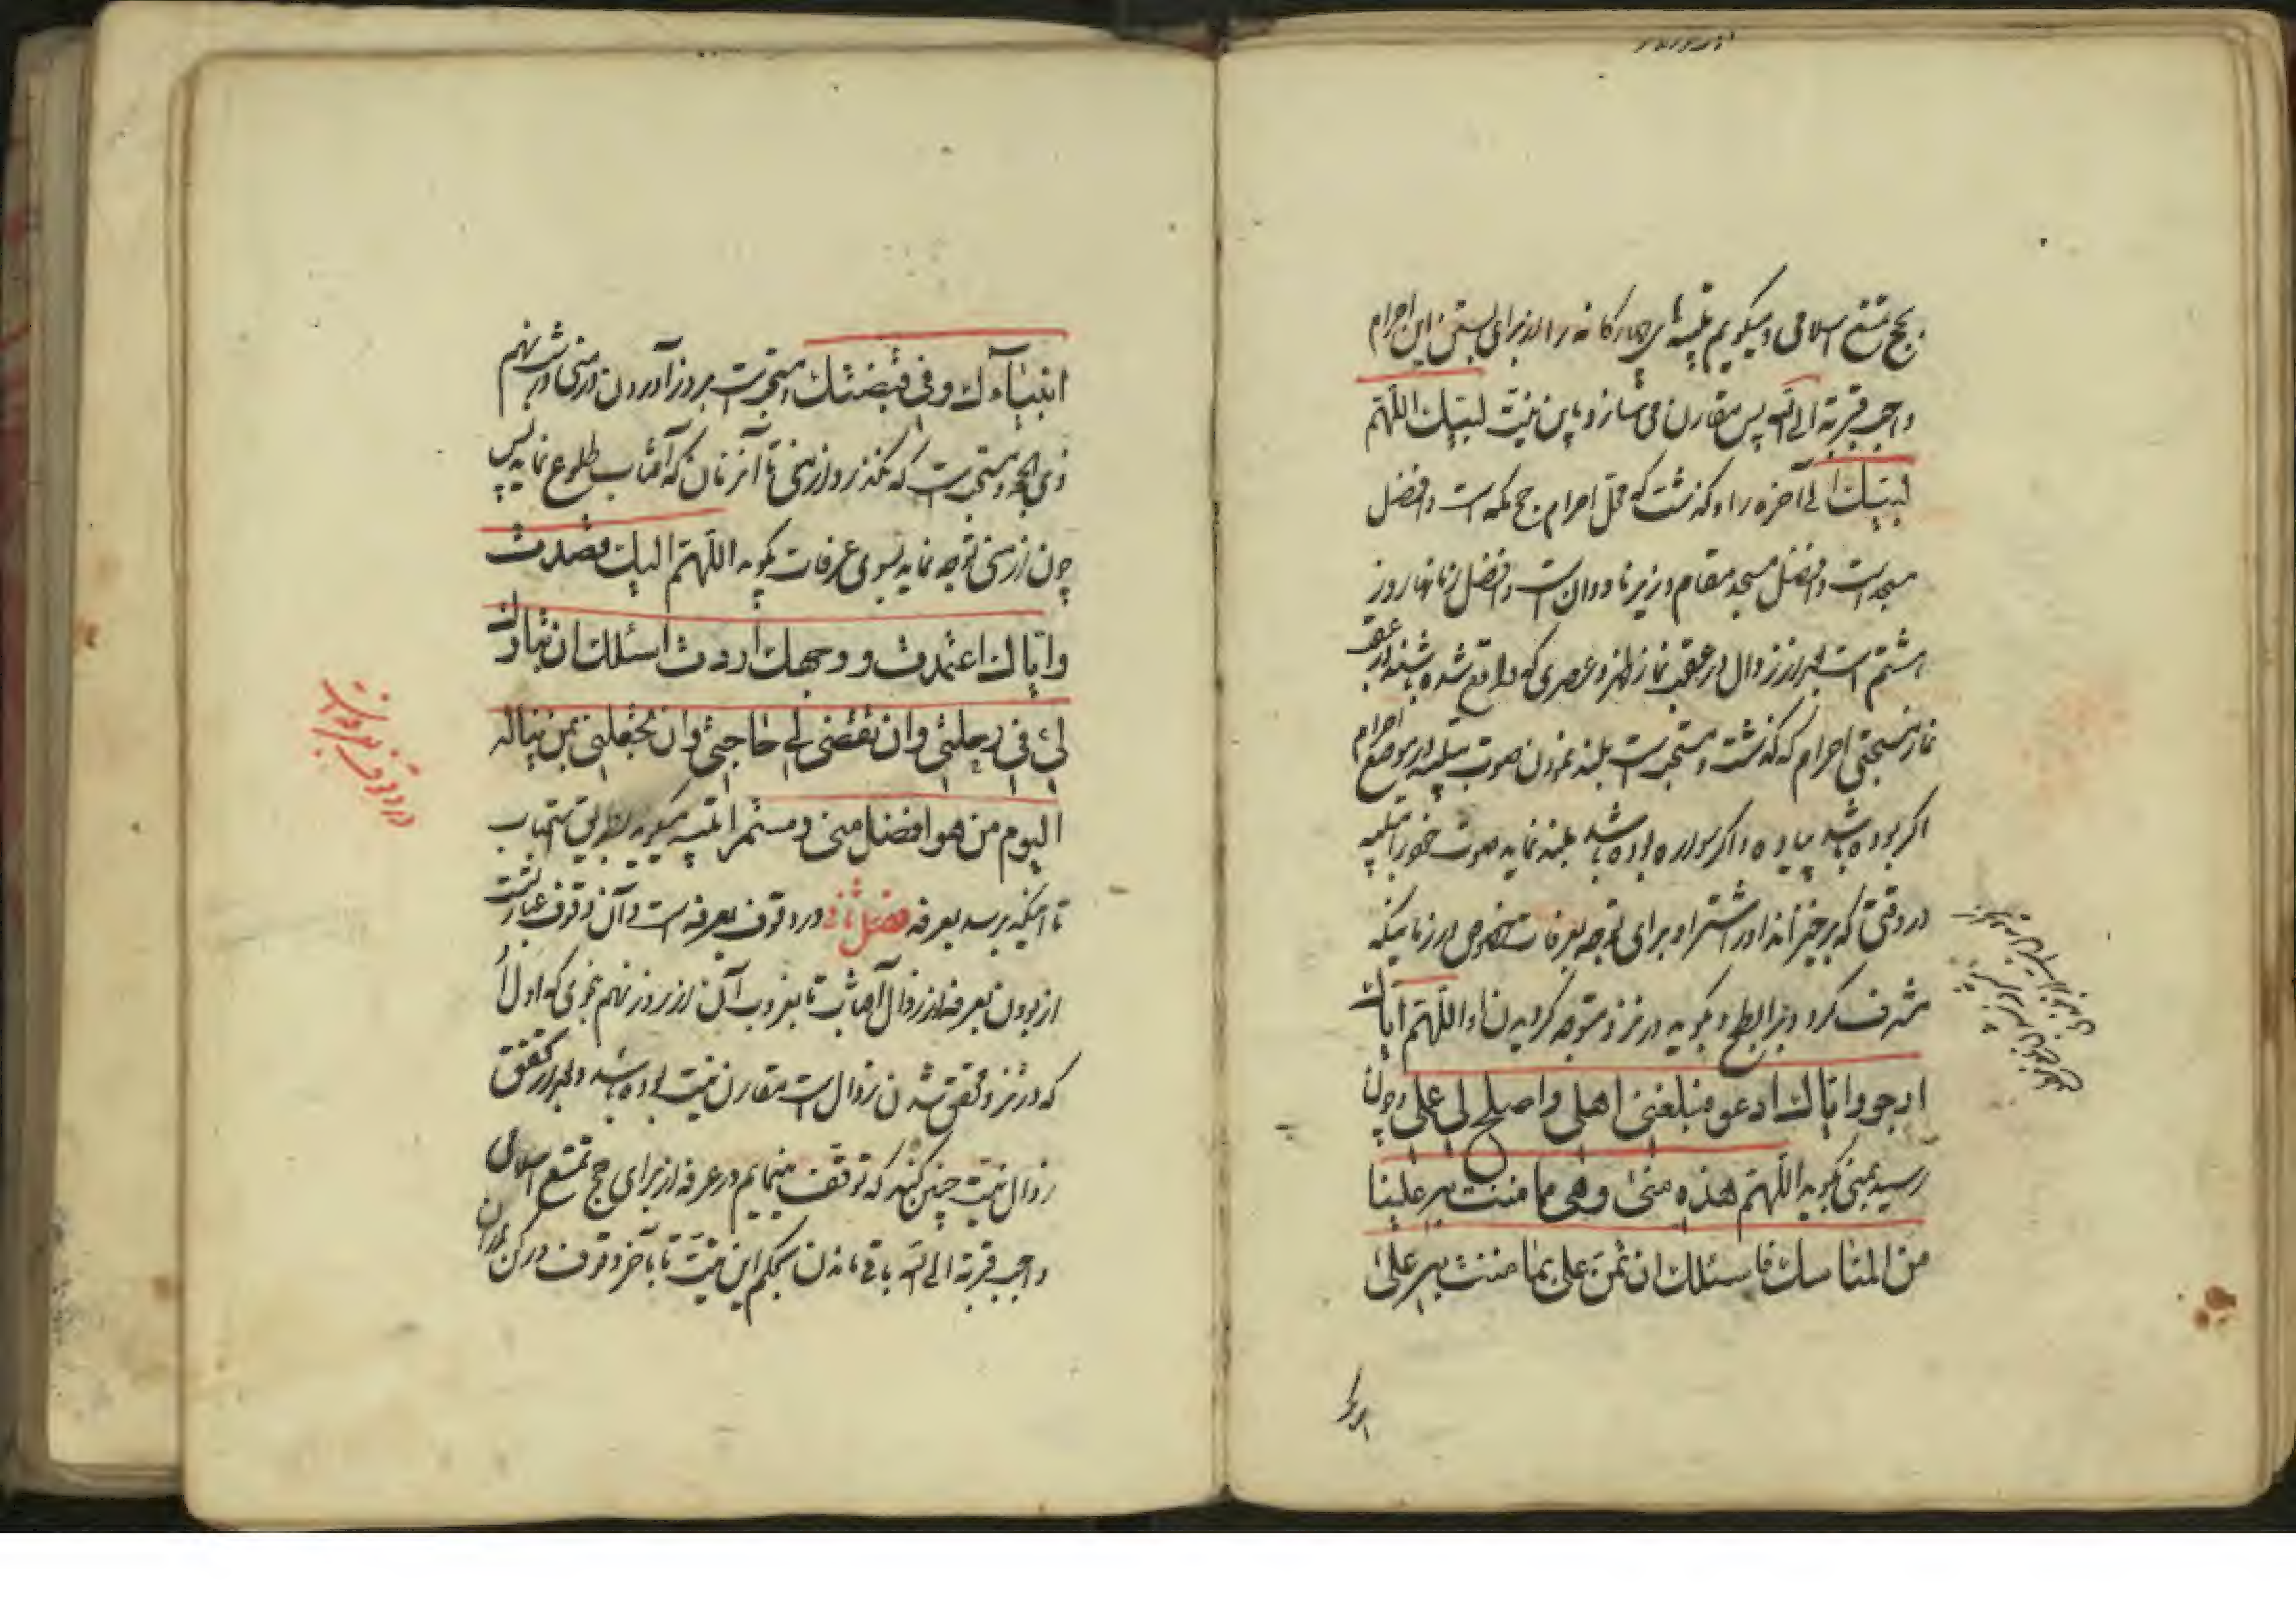 بحج تمتع اسلامی و میگویم تلبیه های چهارگانه را از برای بستن این احرام
واجب قربة الی الله پس مقارن می سازد باین نیت لبیک اللهم
لبیک الی آخره را و گذشت که محل احرام حج مکه است و افضل
مسجد است و افضل مسجد مقام و زیر ناودان است و افضل زمانها روز
هشتم است بعد از زوال در عقب نماز ظهر و عصری که واقع شده باشند در عقب
نماز سنتی احرام که گذشت و مستحب است بلند نمودن صوت بتلبیه در موضع احرام
اگر بوده باشد پیاده و اگر سواره بوده باشد بلند نماید صوت خود را بتلبیه
در وقتی که برخیزاند او را شتر او برای توجه بعرفات در زمانیکه
مشرف گردد بر ابطح و بگوید در نزد متوجه گردیدن اللهم ایاک
ارجو و ایاک ادعو فبلغنی املی و اصلح لی عملی و چون
رسید بمنی بگوید اللهم هذه منی و هی مما مننت به علینا
من المناسک فاسئلک ان تمن علی بما مننت به علی
انبیآءک و فی قبضتک و مستحب است بروز آوردن در منی در شب نهم
ذی الحجه و مستحب است که نگذرد از منی تا آنزمان که آفتاب طلوع نماید پس
چون از منی توجه نماید بسوی عرفات بگوید اللهم الیک قصدت
و ایاک اعتمدت و وجهک اردت اسئلک ان تبارک
لی فی رحلتی و ان تقضی لی حاجتی و ان تجعلنی ممن تباله
الیوم من هو افضل منی و مستمرا تلبیه میگوید بطریق استحباب
تا اینکه برسد بعرفه فصل ثانی در وقوف بعرفه است و آن وقوف عبارتست
از بودن بعرفه از زوال آفتاب تا بغروب آن از روز نهم بنحوی که اولا
که در نزد تحقق شدن زوال است مقارن نیت بوده باشد و بعد از تحقق
زوال نیت چنین کند که توقف مینمایم در عرفه از برای حج تمتع اسلامی
واجب قربة الی الله باقی ماندن بحکم این نیت تا بآخر وقوف رکن
در وقوف بعرفات است